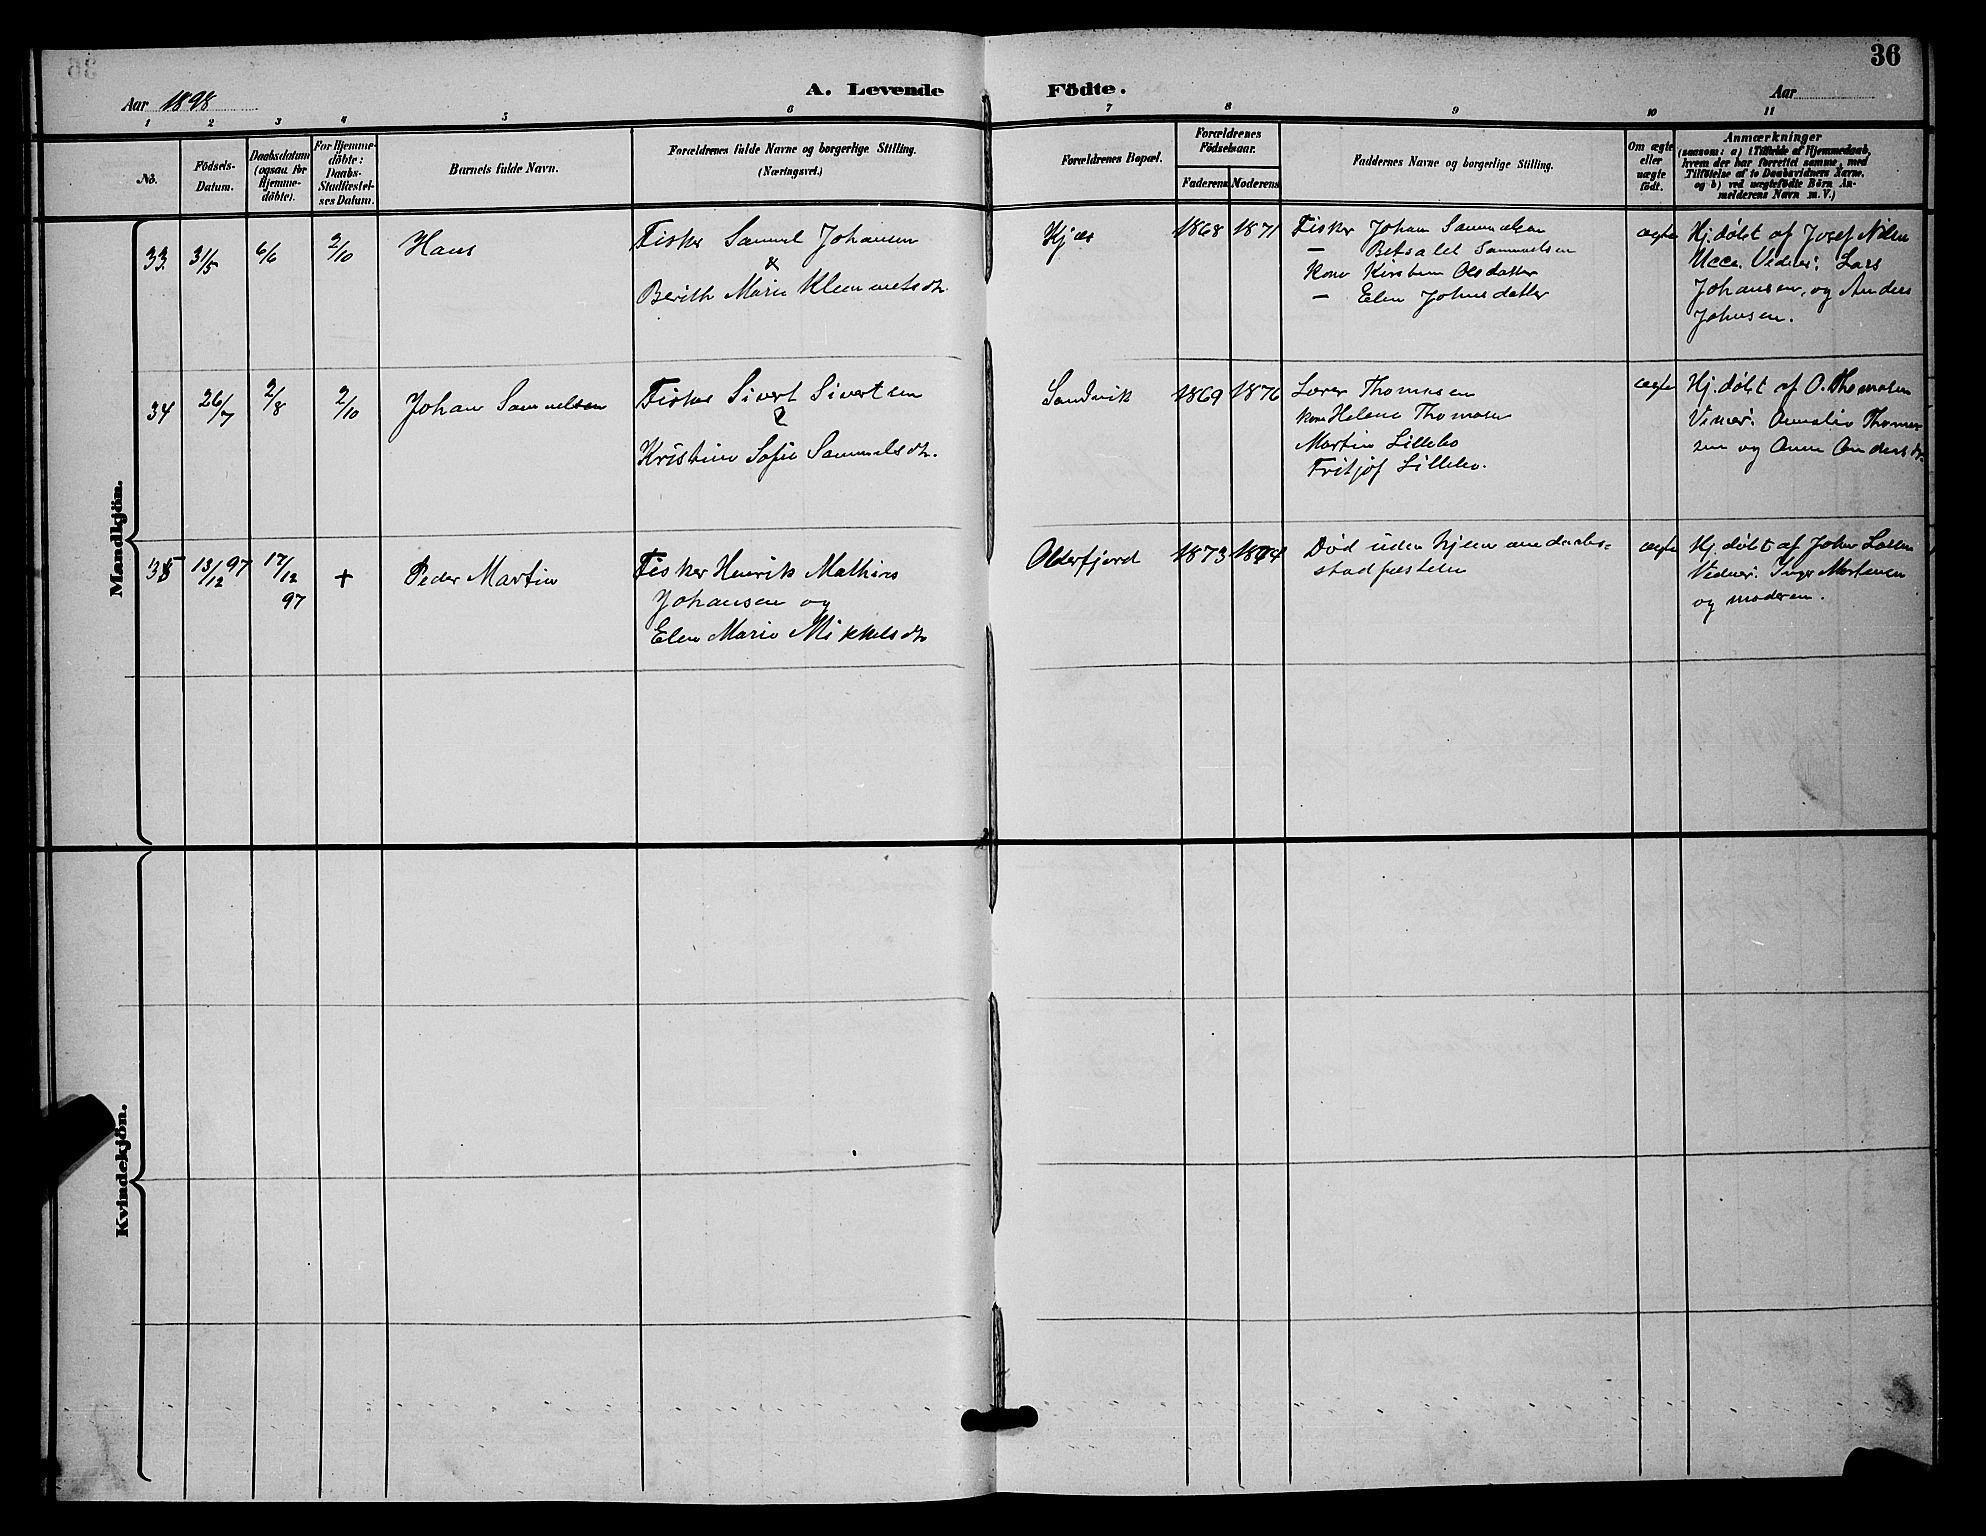 36
Aar 1898
A. Levende Födte.
Aar
1 2 3 4 5 6 7 8 9 10 11
No.
Födsels-
Datum.
Daabsdatum
(ogsaa for
Hjemme-
döbte).
For Hjemme-
döbte:
Daabs-
Stadfæstel-
ses Datum.
Barnets fulde Navn.
Forældrenes fulde Navne og borgerlige Stilling.
(Næringsvei.)
Forældrenes Bopæl.
Forældrenes
Födselsaar.
Faderens Moderens
Faddernes Navne og borgerlige Stilling.
Om ægte
eller
uægte
födt.
Anmærkninger
(saasom: a) i Tilfælde af Hjemmedaab,
hvem der har forrettet samme, med
Tilföielse af to Daabsvidners Navne,
og b) ved uægtefödte Börn An-
melderens Navn m. V.)
Mandkjön.
33. 31/5 6/6 2/10 Hans
Fisker Samuel Johansen
&
Berith Marie Klemmetsdtr.
Kjæs 1868 1871
Fisker Johan Samuelsen
— Betsalet Samuelsen
Kone Kirsten Olsdatter
— Elen Johnsdatter
ægte
Hj. døbt af Josef Nilsen
Ucca. Vidner: Lars
Johansen, og Anders
Johnsen.
34 26/7 2/8 2/10 Johan Samuelsen
Fisker Sivert Sivertsen
&
Kristine Sofie Samuelsdtr.
Sandvik 1869 1876
Lærer Thomasen
Kone Helene Thomasen
Martin Lillebo
Fritjof Lillebo.
ægte
Hj. døbt af O. Thomasen
Vidner: Amalie Thoma-
sen og Anne Andersdtr.
35 13/12 97 17/12 97 + Peder Martin
Fisker Henrik Mathias
Johansen og
Elen Marie Mikkelsdtr
Olderfjord 1873 1874
Død uden hjemmedaabs-
stadfæstelse
ægte
Hj. døbt af John
Vidner: Inger Mortensen
og moderen.
Kvindekjön.